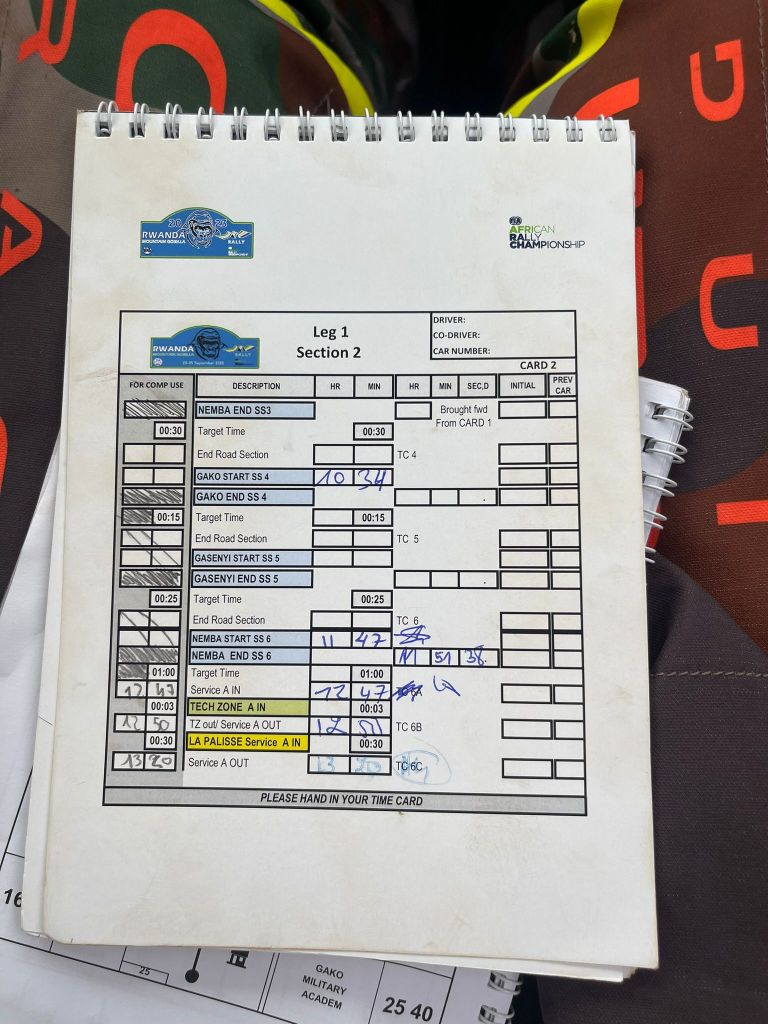 2023
RWANDA
MOUNTAIN GORILLA
RALLY
AFRICAN
RALLY
CHAMPIONSHIP
RWANDA
MOUNTAIN GORILLA
RALLY
Leg 1
Section 2
DRIVER:
CO-DRIVER:
CAR NUMBER:
CARD 2
FOR COMP USE DESCRIPTION HR MIN HR MIN SEC,D INITIAL PREV CAR
NEMBA END SS3 Brought fwd
From CARD 1
00:30 Target Time 00:30
End Road Section TC 4
GAKO START SS 4 10 34
GAKO END SS 4
00:15 Target Time 00:15
End Road Section TC 5
GASENYI START SS 5
GASENYI END SS 5
00:25 Target Time 00:25
End Road Section TC 6
NEMBA START SS 6 11 47
NEMBA END SS 6 11 51 38
01:00 Target Time 01:00
12 47 Service A IN 12 47
00:03 TECH ZONE A IN 00:03
12 50 TZ out/ Service A OUT 12 50 TC 6B
00:30 LA PALISSE Service A IN 00:30
13 20 Service A OUT 13 20 TC 6C
PLEASE HAND IN YOUR TIME CARD
16
25
GAKO
MILITARY
ACADEM
25 40